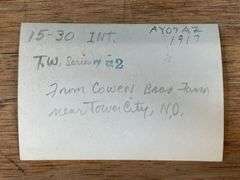 15-30 INT.
1917
T.W. Series # 2
From Cowen Bros Farm
near Tower City, ND.